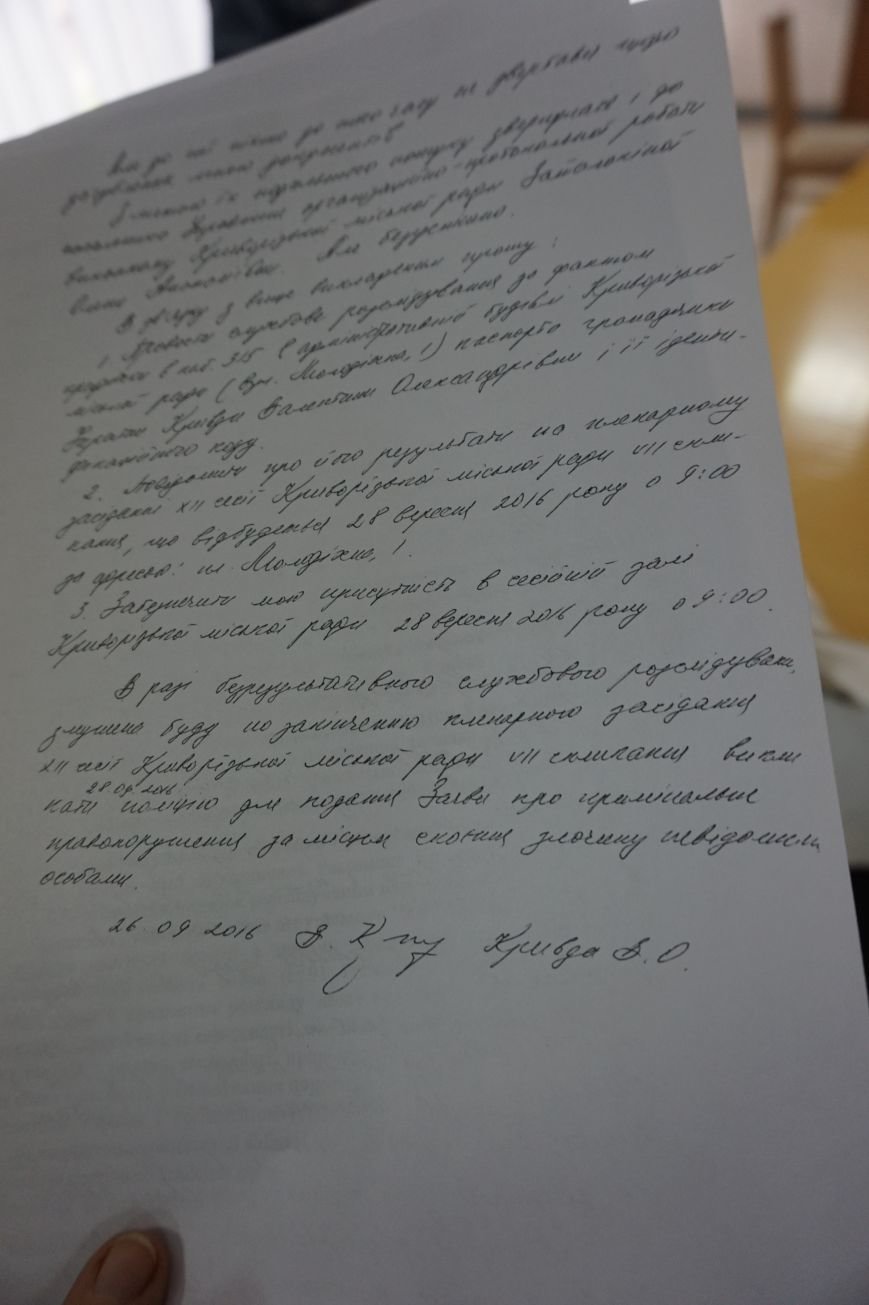 Він до неї ніхто до того часу не звертався щодо
загублених мною документів
З метою їх подальшого пошуку звернулась і до
начальника Управління організаційно-протокольної роботи
виконкому Криворізької міської ради Заталокіної
Вікни. Але безуспішно.
В зв'язку з вище викладеним прошу:
1. Провести службове розслідування за фактом
пропажі в каб. 315 в адміністративній будівлі Криворізької
міської ради (вул. Молодіжна, 1) паспорта громадянки
України Кривди Валентини Олександрівни і її іденти-
фікаційного коду.
2. Повідомити про його результати на пленарному
засіданні XII сесії Криворізької міської ради VII скли-
кання, що відбудеться 28 вересня 2016 року о 9:00
за адресою: пл. Молодіжна, 1.
3. Забезпечити мою присутність в сесійній залі
Криворізької міської ради 28 вересня 2016 року о 9:00.
В разі безрезультативного службового розслідування,
змушена буду по закінченню пленарного засідання
XII сесії Криворізької міської ради VII скликання викли
28.09.2016
кати поліцію для подання Заяви про кримінальне
правопорушення за місцем скоєння злочину невідомими
особами.
26.09 2016 В. Кривда В.О.